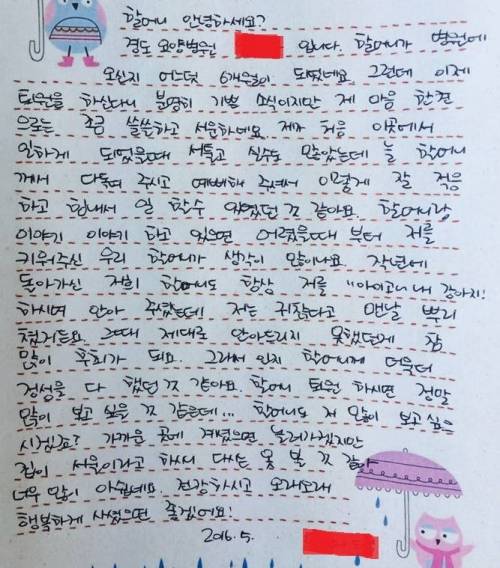 할머니 안녕하세요?
결도 요양병원 입니다. 할머니가 병원에
오신지 어느덧 6개월이 되었네요 그런데 이제
퇴원을 하신다니 분명히 기쁜 소식이지만 제 마음 한켠
으로는 조금 쓸쓸하고 서운하네요. 제가 처음 이곳에서
일하게 되었을때 서툴고 실수도 많았는데 늘 할머니
께서 다독여 주시고 예뻐해 주셔서 이렇게 잘 적응
하고 힘내서 일 할수 있었던 것 같아요. 할머니랑
이야기 이야기 하고 있으면 어렸을때 부터 저를
키워주신 우리 할머니가 생각이 많이나요. 작년에
돌아가신 저희 할머니도 항상 저를 "아이고~ 내 강아지!
하시며 안아 주셨는데 저는 귀찮다고 맨날 뿌리
쳤거든요. 그때 제대로 안아드리지 못했던게 참
많이 후회가 되요. 그래서 인지 할머니께 더욱더
정성을 다 했던 것 같아요. 할머니 퇴원 하시면 정말
많이 보고 싶을 것 같은데... 할머니도 저 많이 보고 싶으
시겠죠? 가까운 곳에 계셨으면 놀러가겠지만
집이 서울이라고 하셔서 다시는 못 볼 것 같아
너무 많이 아쉽네요. 건강하시고 오래오래
행복하게 사셨으면 좋겠어요!
2016. 5.